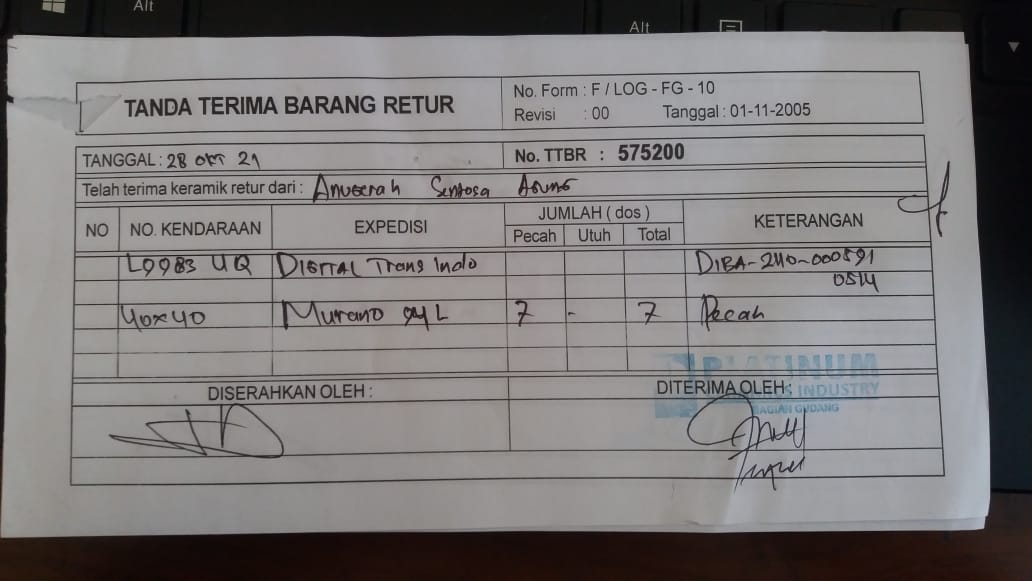 Alt
Alt
TANDA TERIMA BARANG RETUR
No. Form : F / LOG - FG - 10
Revisi : 00 Tanggal : 01-11-2005
TANGGAL : 28 OKT 21
No. TTBR : 575200
Telah terima keramik retur dari : Anugerah Sentosa Agung
NO NO. KENDARAAN EXPEDISI JUMLAH ( dos ) KETERANGAN
Pecah Utuh Total
L9983 UQ DIGITAL Trans Indo DIBA-240-000591
0514
40x40 Murano L 7 - 7 Pecah
DISERAHKAN OLEH : DITERIMA OLEH :
PLATINUM
INDUSTRY
BAGIAN GUDANG